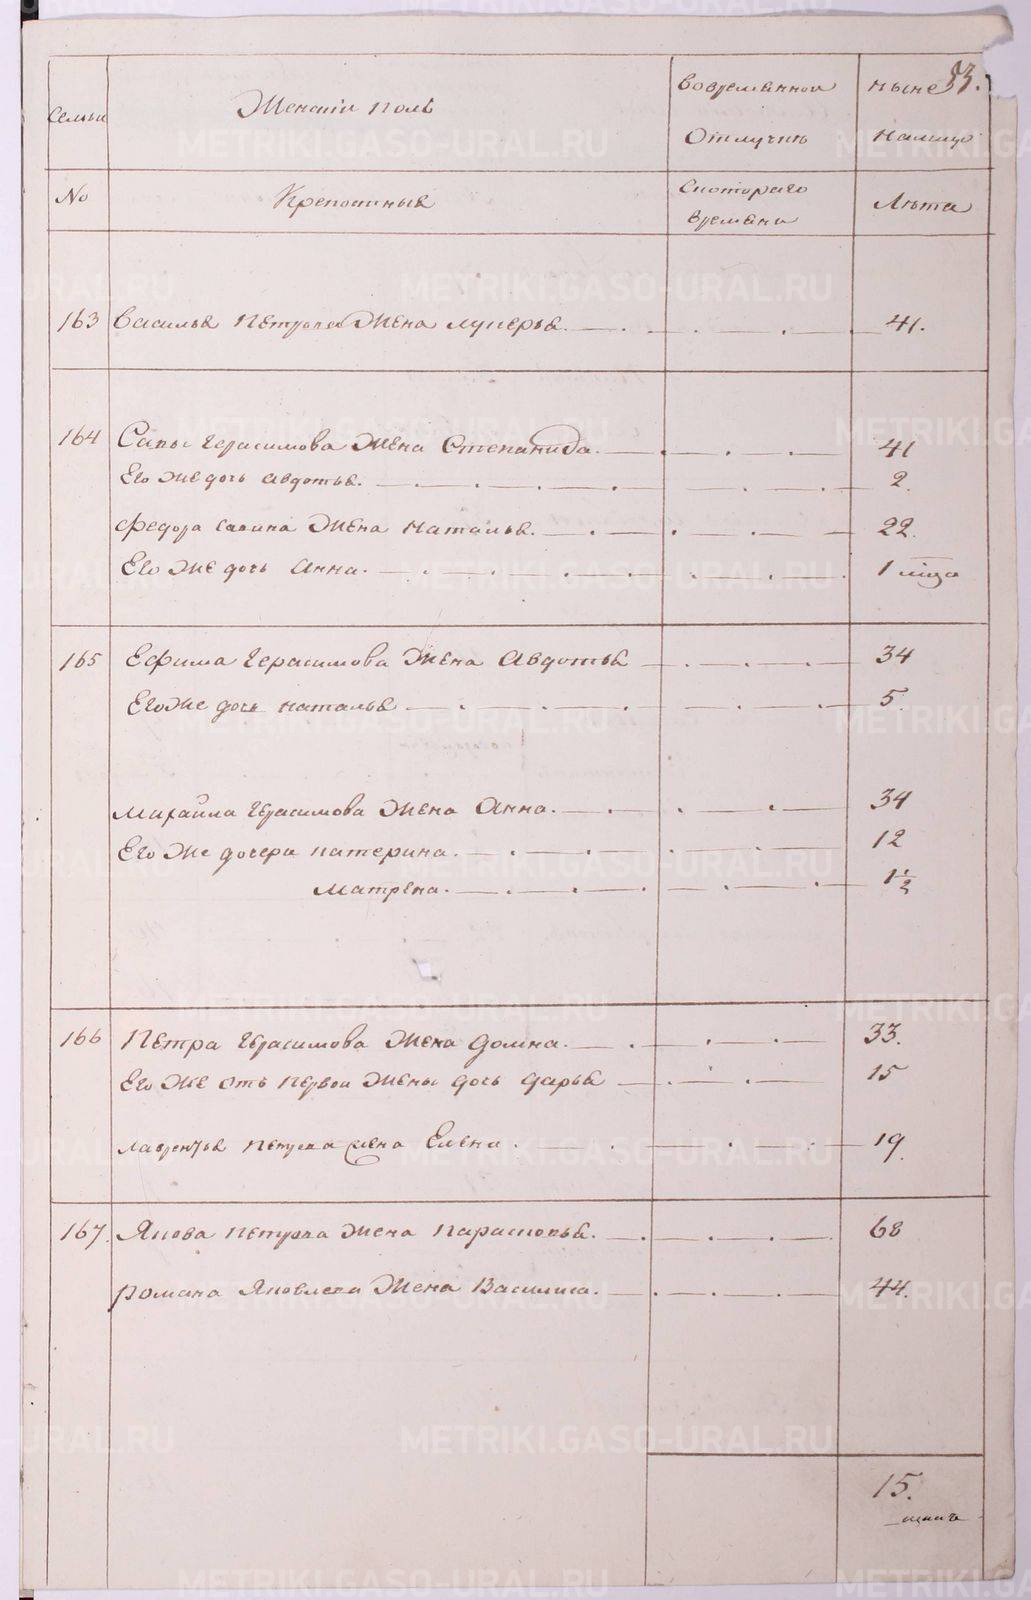 53.
Семьи Женскiй полъ во временной ныне
Отлучке на лицо
No Крепостныя С котораго Лѣта
времени
163 Василья Петрова Жена лукерья 41.
164 Савы Герасимова Жена Степанида. 41
Его же дочь авдотья. 2.
Федора савина Жена Наталья. 22.
Его же дочь анна. 1 мца
165 Ефима Герасимова Жена Авдотья 34
Его же дочь наталья 5.
михайла Герасимова Жена Анна. 34
Его же дочери катерина. 12
Матрена. 1½
166 Петра Герасимова Жена домна. 33.
Его же отъ первой жены дочь дарья 15
лаврентья петрова жена Елена. 19.
167. Якова петрова жена парасковья. 68
романа Яковлева Жена Василиса. 44.
15.
METRIKI.GASO-URAL.RU